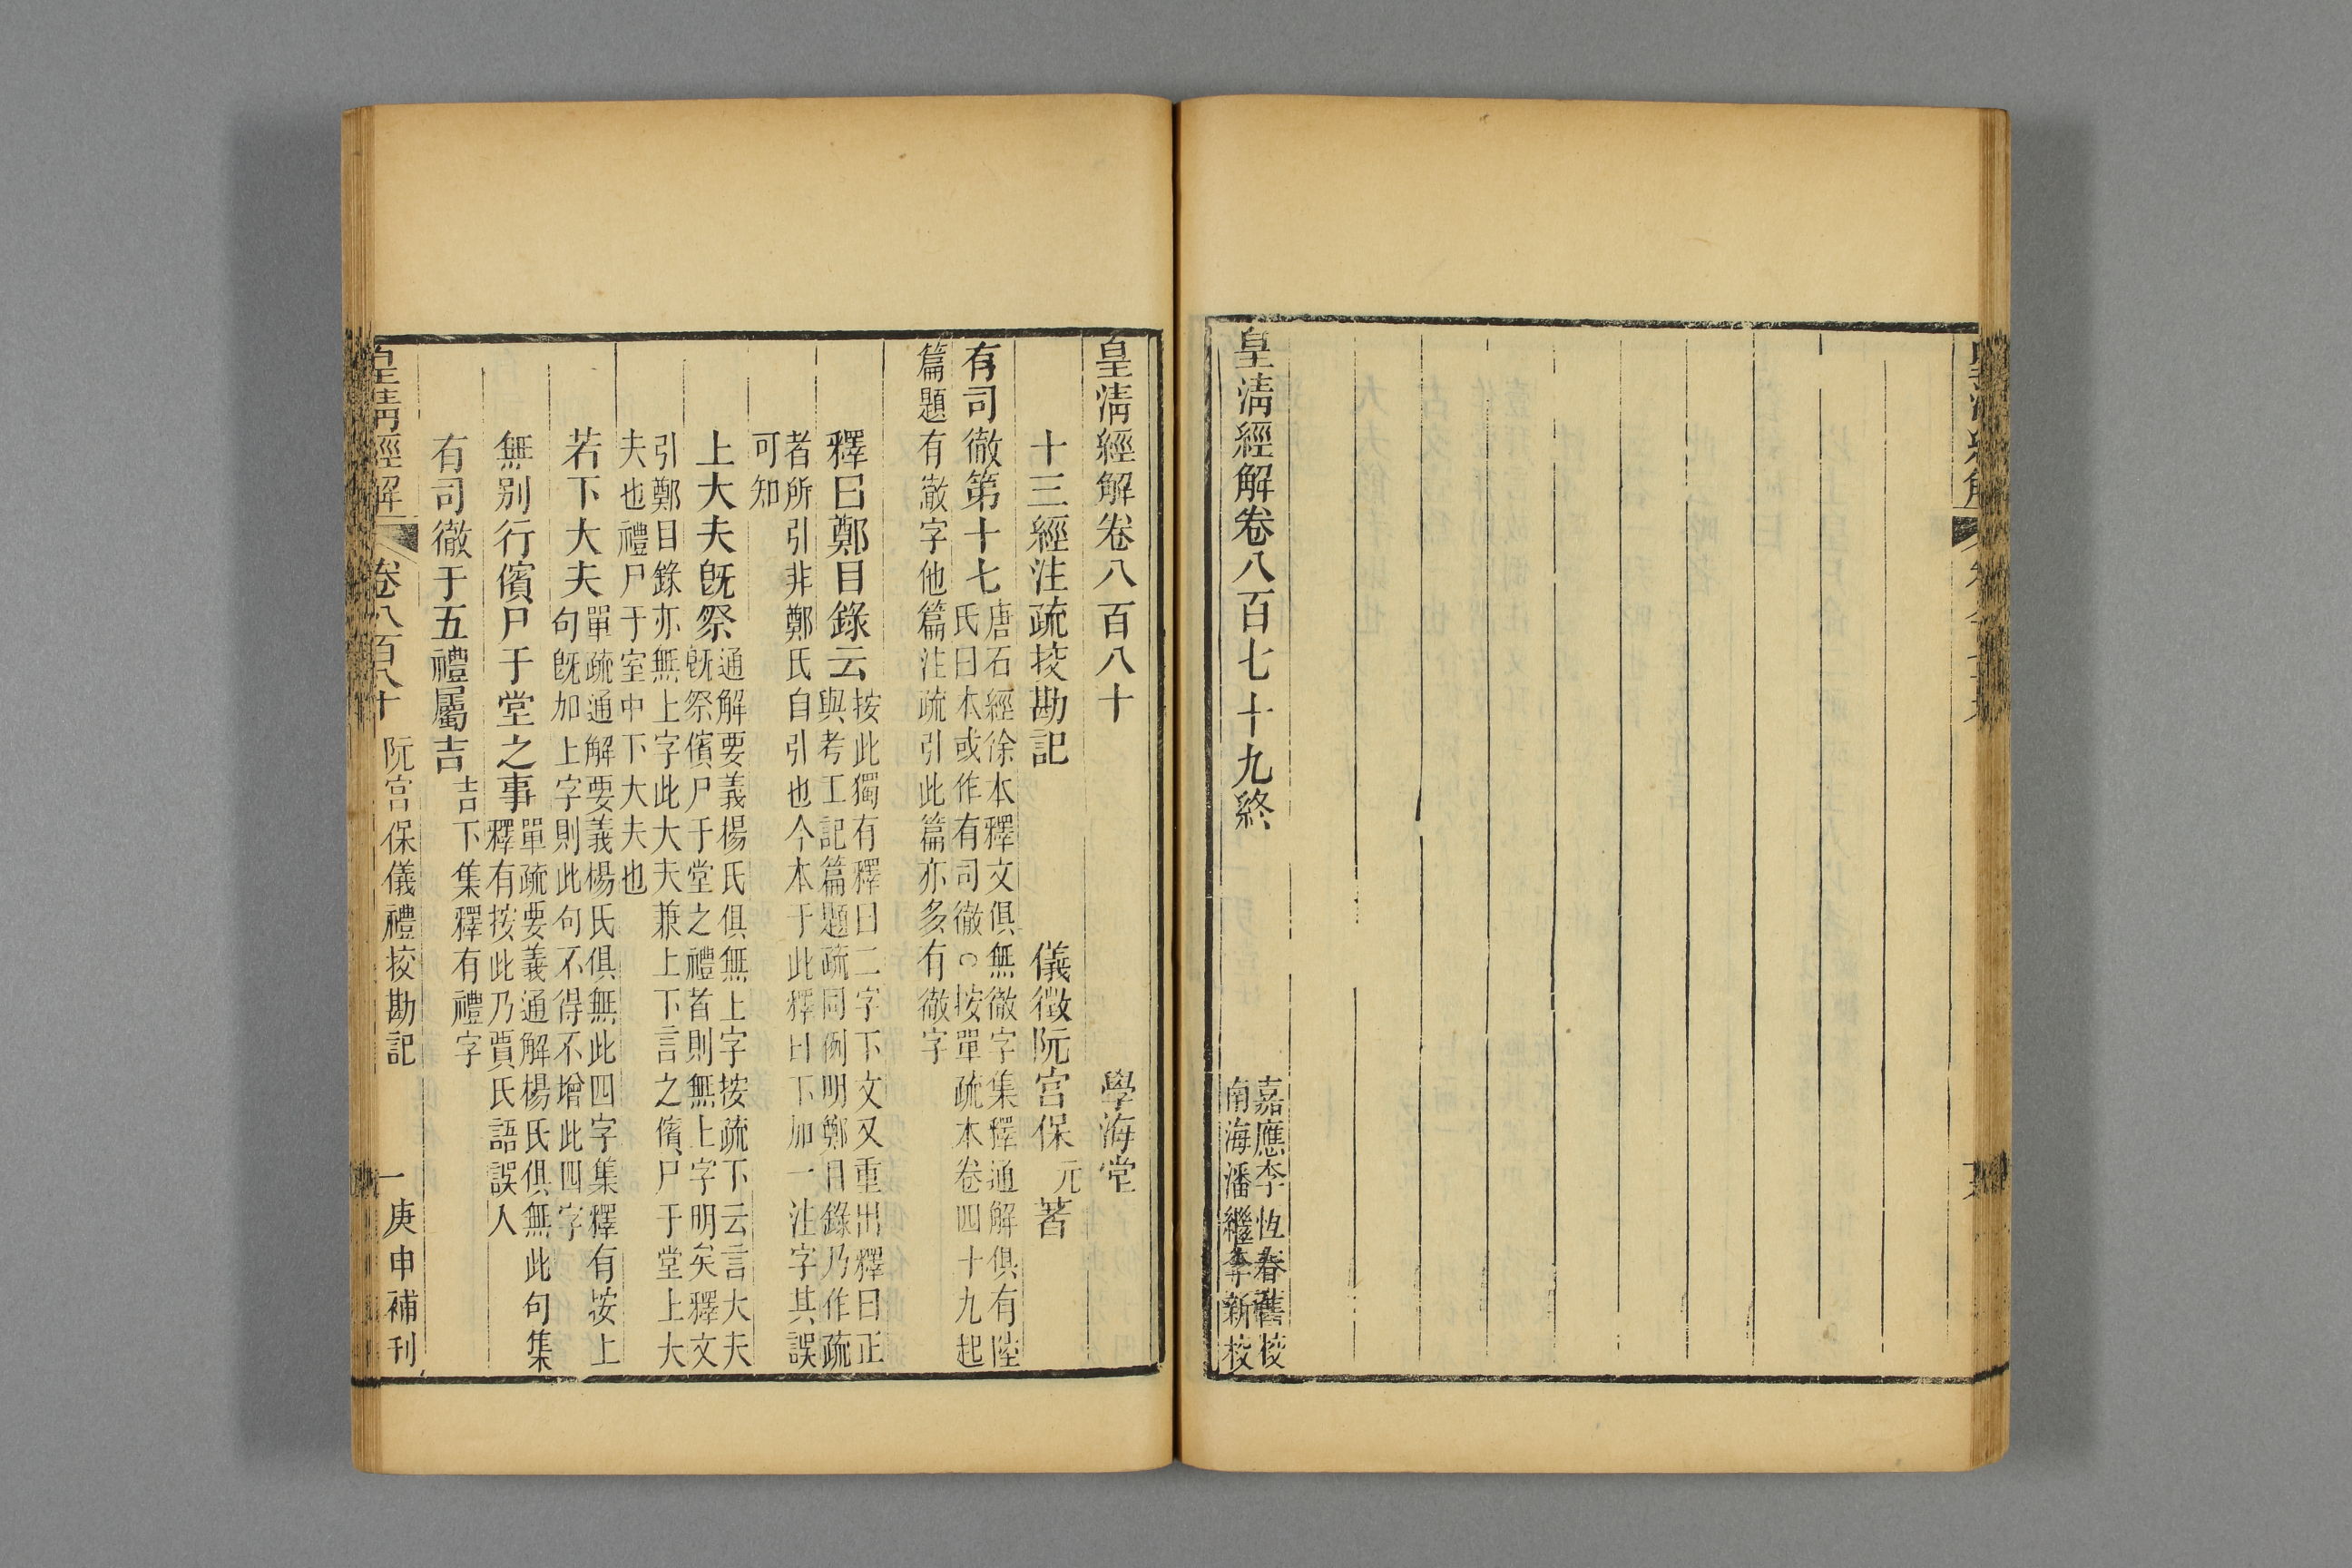 皇清經解卷八百七十九終
嘉應李恆春舊校
南海潘繼李新校
皇清經解卷八百八十
學海堂
十三經注疏挍勘記
儀徵阮宫保元著
有司徹第十七
唐石經徐本釋文俱無徹字集釋通解俱有陸
氏曰本或作有司徹○按單疏本卷四十九起
篇題有徹字他篇注疏引此篇亦多有徹字
釋曰鄭目錄云
按此獨有釋曰二字下文又重出釋曰正
與考工記篇題疏同例明鄭目錄乃作疏
者所引非鄭氏自引也今本于此釋曰下加一注字其誤
可知
上大夫旣祭
通解要義楊氏俱無上字按疏下云言大夫
旣祭儐尸于堂之禮首則無上字明矣釋文
引鄭目錄亦無上字此大夫兼上下言之儐尸于堂上大
夫也禮尸于室中下大夫也
若下大夫
單疏通解要義楊氏俱無此四字集釋有按上
句旣加上字則此句不得不增此四字
無别行儐尸于堂之事
單疏要義通解楊氏俱無此句集
釋有按此乃賈氏語誤入
有司徹于五禮屬吉
吉下集釋有禮字
皇清經解
卷八百八十
阮宫保儀禮挍勘記
一
庚申補刊